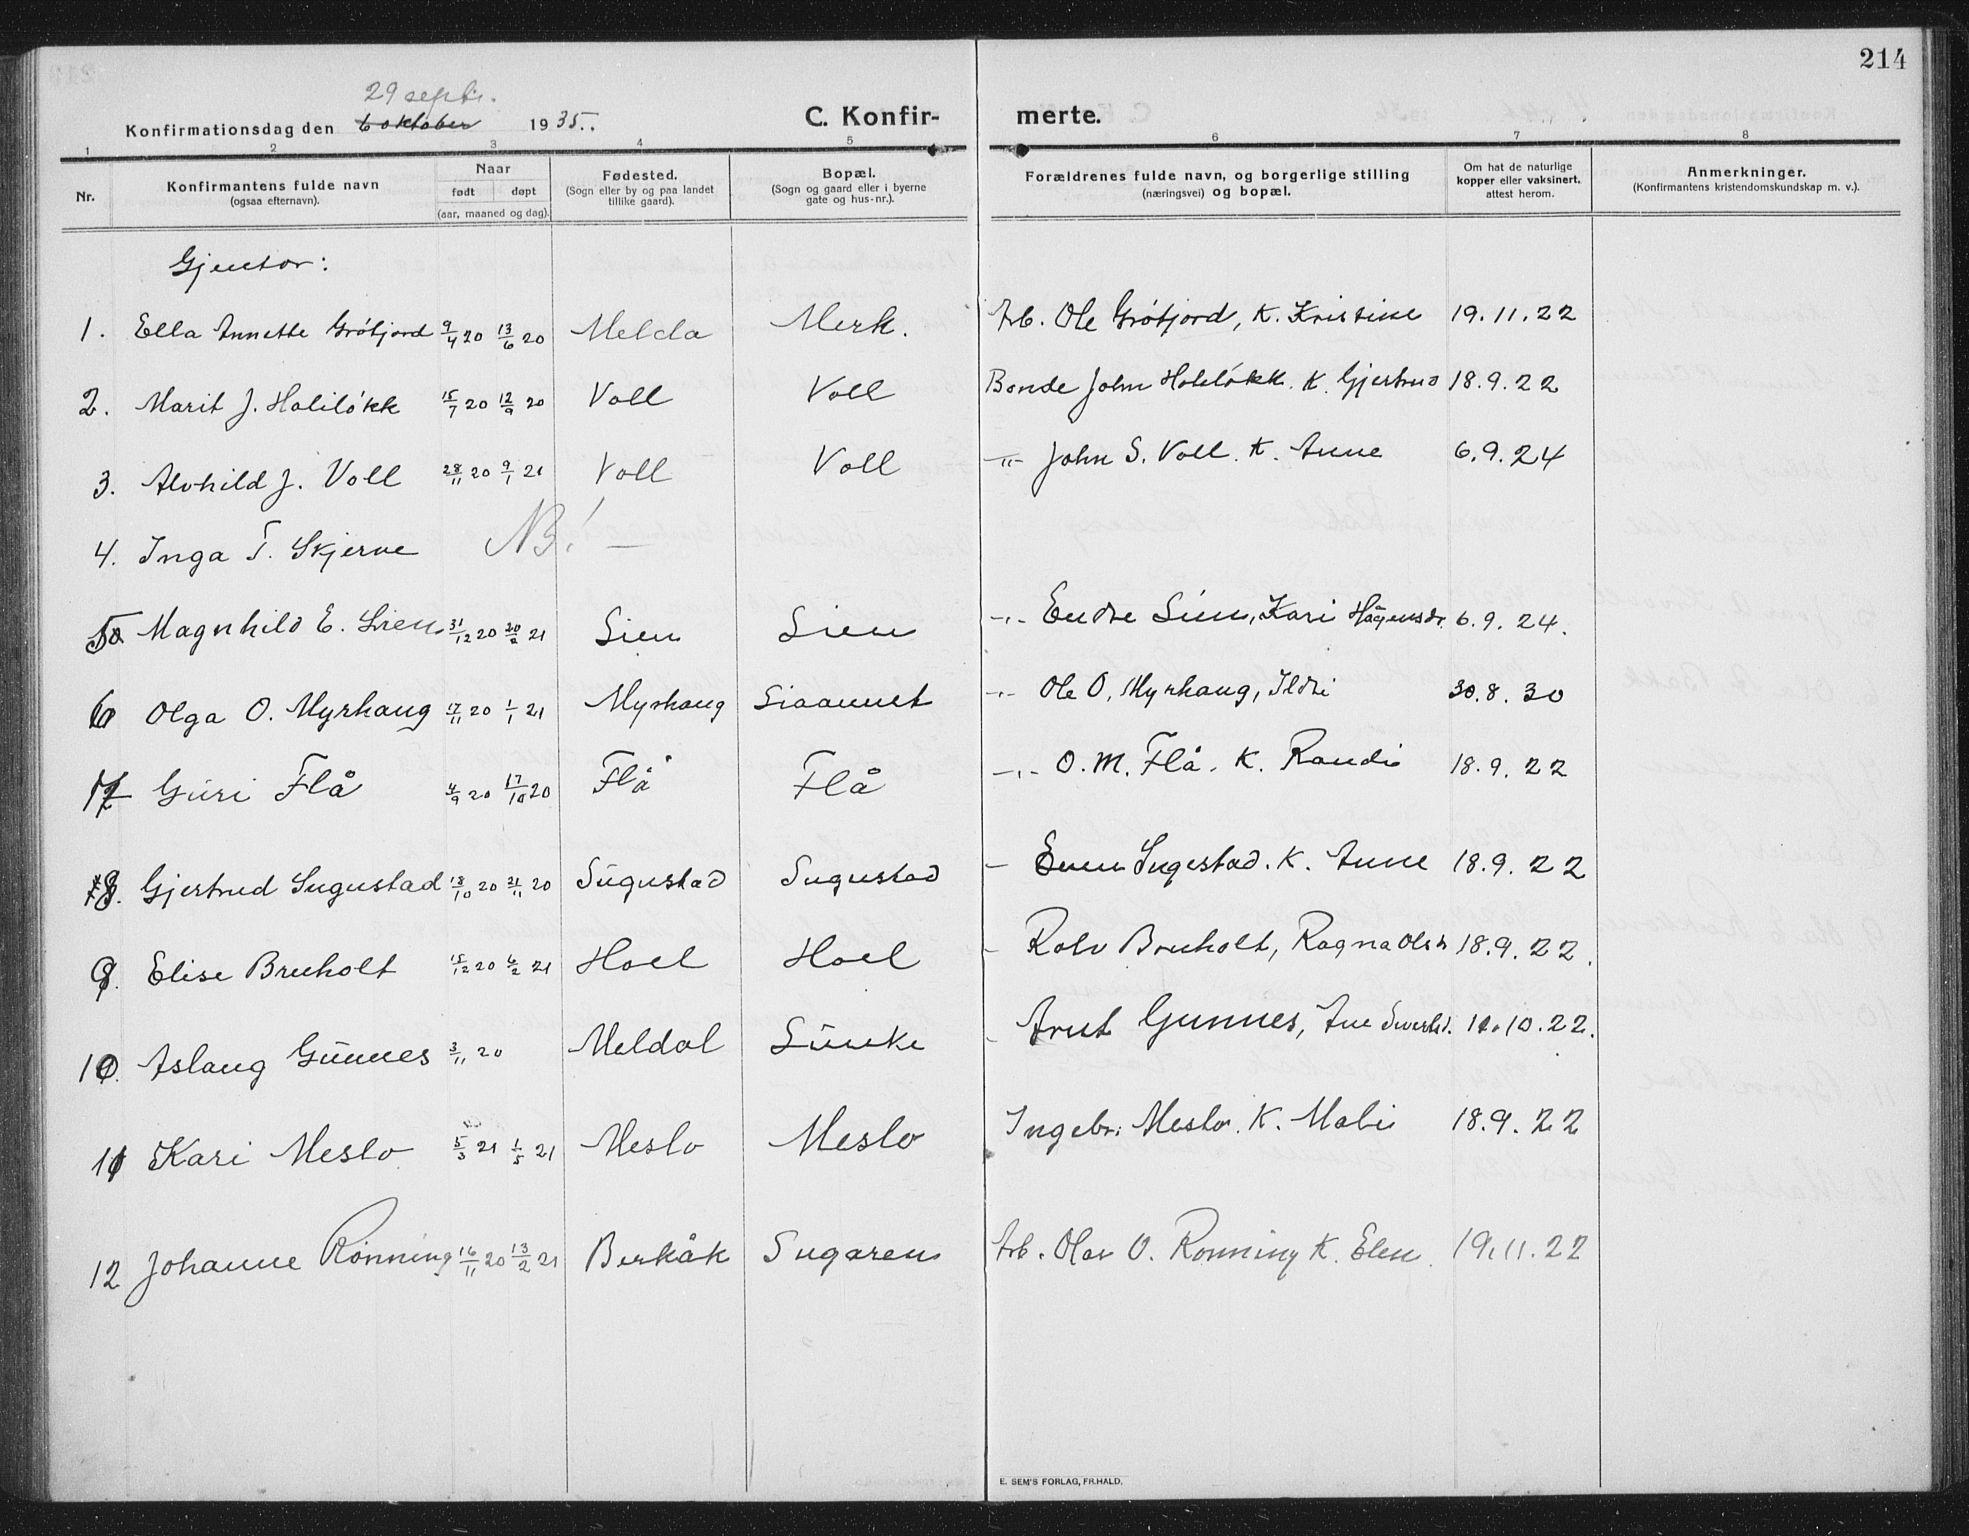 214
29 septbr.
Konfirmationsdag den 6 oktober 1935.
C. Konfir- merte.
1 2 3 4 5 6 7 8
Nr. Konfirmantens fulde navn (ogsaa efternavn). Naar født døpt (aar, maaned og dag). Fødested. (Sogn eller by og paa landet tillike gaard). Bopæl. (Sogn og gaard eller i byerne gate og hus-nr.). Forældrenes fulde navn, og borgerlige stilling (næringsvei) og bopæl. Om hat de naturlige kopper eller vaksinert, attest herom. Anmerkninger. (Konfirmantens kristendomskundskap m. v.).
Gjentor:
1. Ella Annette Grötjord 9/4 20 13/6 20 Melda Merk. Arb. Ole Grötjord, K. Kristine 19.11.22
2. Marit J. Holilökk 15/7 20 12/9 20 Voll Voll Bonde John Holilökk. K. Gjertrud 18.9.22
3. Alvhild J. Voll 28/11 20 9/1 21 Voll Voll -"- John S. Voll. K. Anne 6.9.24
4. Inga T. Skjerve NB! —
5 Magnhild E. Lien 31/12 20 20/2 21 Lien Lien -"- Endre Lien, Kari Hågensdr. 6.9.24.
6 Olga O. Myrhaug 17/11 20 1/1 21 Myrhaug Liaannet -"- Ole O. Myrhaug, Ildri 30.8.30
7 Guri Flå 4/9 20 17/10 20 Flå Flå -"- O. M. Flå. K. Randi 18.9.22
8. Gjertrud Sugustad 18/10 20 21/11 20 Sugustad Sugustad - Even Sugestad. K. Anne 18.9.22
9. Elise Bruholt 15/12 20 6/2 21 Hoel Hoel - Rolv Bruholt, Ragna Olsdr 18.9.22.
10. Aslaug Gunnes 3/11 20 Meldal Lünke - Arnt Gunnes, Ane Sivertsd. 11.10.22.
11 Kari Meslo 5/3 21 1/5 21 Meslo Meslo Ingebr. Meslo. K. Mali 18.9.22
12 Johanne Rönning 16/11 20 13/2 21 Berkåk Sugaren Arb. Olav O. Rönning K. Elen. 19.11.22
E. SEM'S FORLAG, FR.HALD.